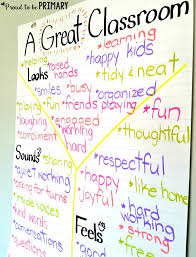 Proud to be PRIMARY
A Great Classroom
*learning
*helping
Looks
*raised hands
*happy kids
*tidy & neat
*smiles
*busy
*organized
*playing
*friends playing
*fun
*laughing
*engaging
*compliment
*working hard
*thoughtful
Sounds
*sharing
*respectful
*quiet working
*asking for turns
*happy
joyful
*like home
*inside voices
*kind words
*hard working
*conversations
*strong
*questions
Feels
*free